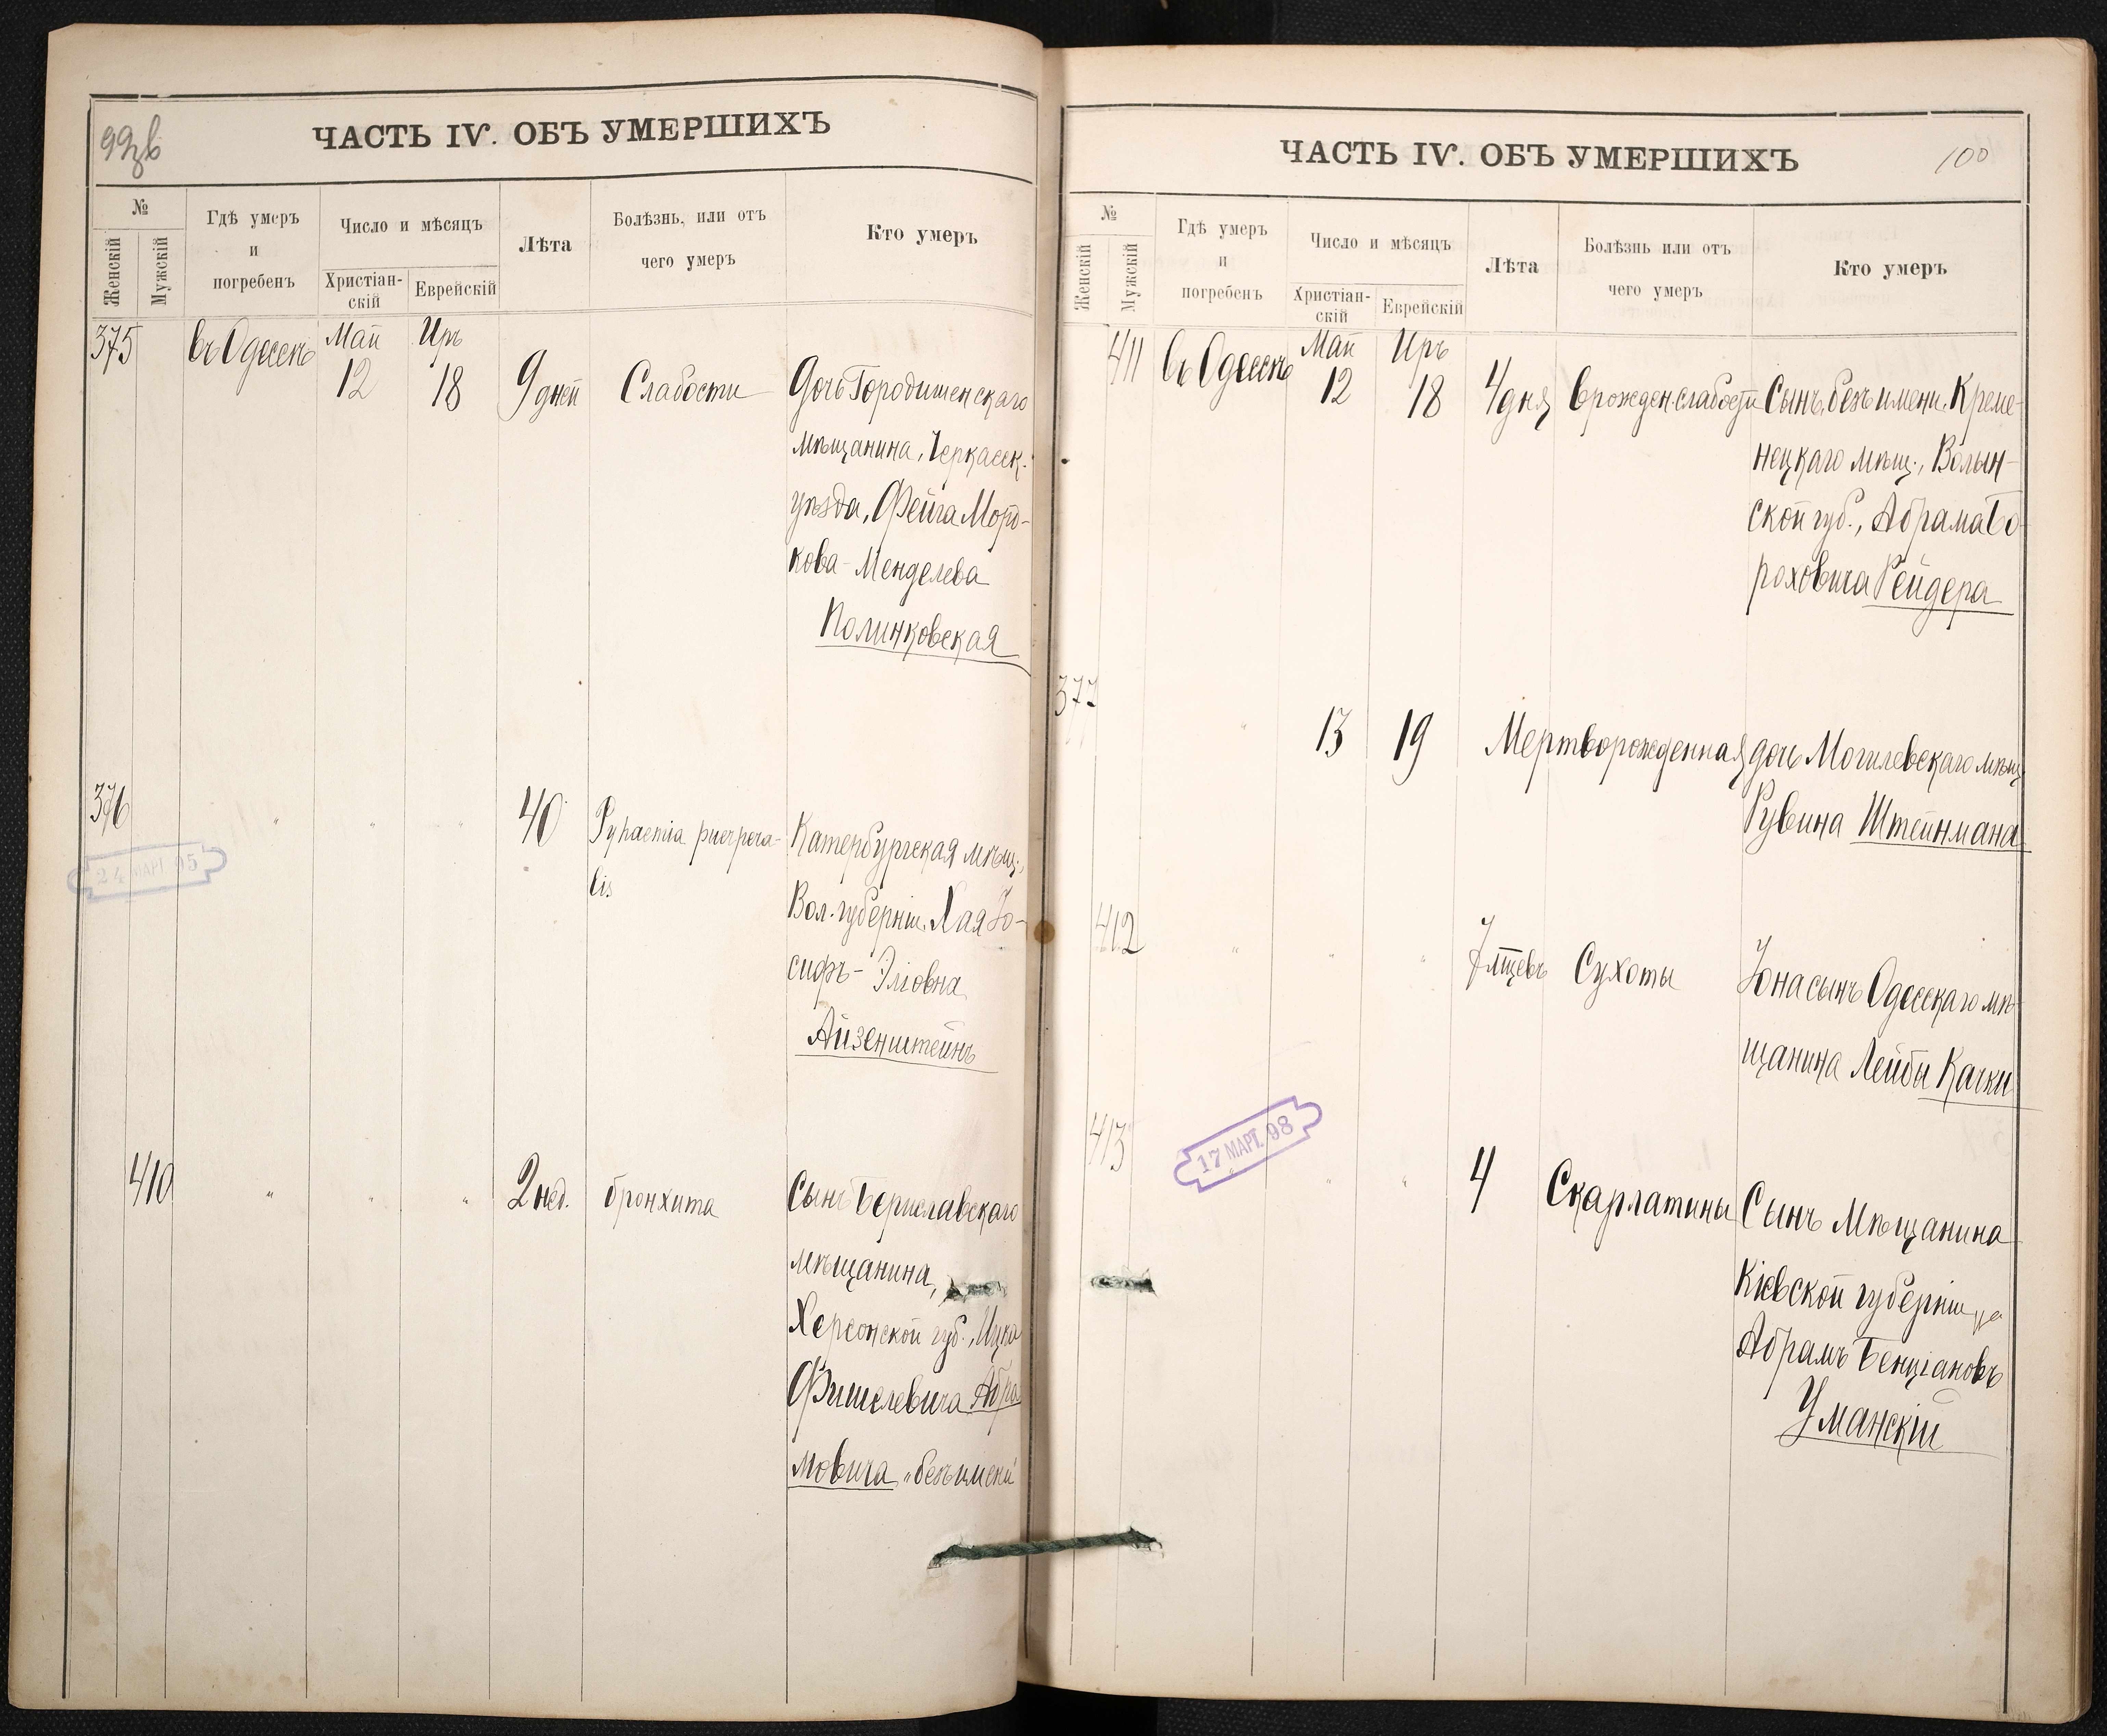 99зв
ЧАСТЬ IV. ОБЪ УМЕРШИХЪ
№
Женскій
Мужскій
Гдѣ умеръ
и
погребенъ
Число и мѣсяцъ
Христіан-
скій
Еврейскій
Лѣта
Болѣзнь, или отъ
чего умеръ
Кто умеръ
375 въ Одессѣ Май 12 Иръ 18 9 дней Слабости Дочь Городищенскаго
мѣщанина, Черкасск.
уѣзда, Фейга Морд-
кова-Менделева
Полинковская
376 " " " 40 Pyhaemia puerpera- Катербургская мѣщ.,
lis Вол. губерніи, Хая Іо-
сифъ-Эліовна
Айзенштейнъ
24 МАРТ. 95
410 " " " 2 нед. бронхита Сынъ Бериславскаго
мѣщанина,
Херсонской губ., Ицка
Фишелевича Абра
мовича, "безъ имени"
ЧАСТЬ IV. ОБЪ УМЕРШИХЪ
100
№
Женскій
Мужскій
Гдѣ умеръ
и
погребенъ
Число и мѣсяцъ
Христіан-
скій
Еврейскій
Лѣта
Болѣзнь или отъ
чего умеръ
Кто умеръ
411 въ Одессѣ Май 12 Иръ 18 4 дня Врожден. слабости Сынъ, безъ имени, Креме-
нецкаго мѣщ., Волын-
ской губ., Абрама Бо-
роховича Рейдера
377 " 13 19 Мертворожденная дочь Могилевскаго мѣщ
Рувина Штейнмана
412 " " " 7 мѣсцевъ Сухоты Іона сынъ Одесскаго мѣ-
щанина Лейбы Качки
413 " " " 4 Скарлатины Сынъ Мѣщанина
17 МАРТ. 98
Кіевской губерніи
Абрамъ Бенціановъ
Уманскій